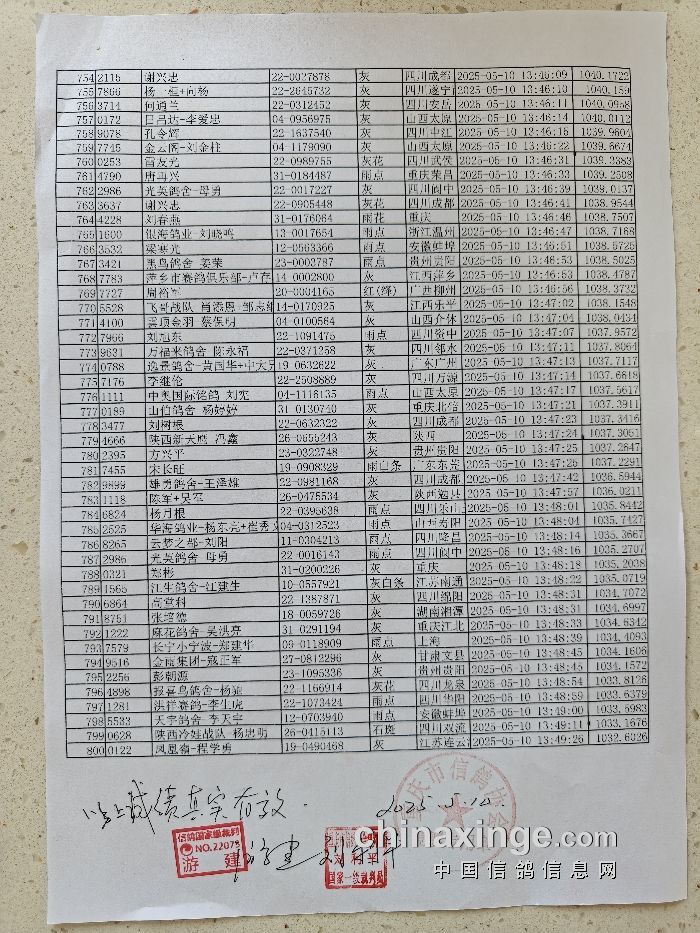 754 2115 谢兴忠 22-0027878 灰 四川成都 2025-05-10 13:46:09 1040.1722
755 7866 杨一桓+向杨 22-2645732 灰 四川遂宁 2025-05-10 13:46:10 1040.159
756 3714 何通兰 22-0312452 灰 四川安岳 2025-05-10 13:46:11 1040.0958
757 0172 吕昌达+李爱忠 04-0956975 灰 山西太原 2025-05-10 13:46:14 1040.0112
758 9078 孔令辉 22-1637540 灰 四川中江 2025-05-10 13:46:15 1039.9604
759 7745 金云阁-刘金柱 04-1179090 灰 山西太原 2025-05-10 13:46:22 1039.6674
760 0253 雷友光 22-0989755 灰花 四川武侯 2025-05-10 13:46:31 1039.3383
761 4790 唐再兴 31-0184487 雨点 重庆荣昌 2025-05-10 13:46:33 1039.2508
762 2986 光英鸽舍-母勇 22-0017227 灰 四川阆中 2025-05-10 13:46:39 1039.0137
763 3637 谢兴忠 22-0905448 灰花 四川成都 2025-05-10 13:46:41 1038.9544
764 4228 刘春燕 31-0176064 雨花 重庆 2025-05-10 13:46:46 1038.7507
765 1600 银海鸽业-刘晓鸣 13-0017654 雨点 浙江温州 2025-05-10 13:46:47 1038.7168
766 3532 梁寒光 12-0563366 雨点 安徽蚌埠 2025-05-10 13:46:51 1038.5725
767 3421 黑鸟鸽舍-姜荣 23-0003787 雨点 贵州贵阳 2025-05-10 13:46:53 1038.5025
768 7783 萍乡市赛鸽俱乐部-卢存 14-0002800 灰 江西萍乡 2025-05-10 13:46:53 1038.4787
769 7727 周裕军 20-0004165 红(绛) 广西柳州 2025-05-10 13:46:56 1038.3732
770 5528 飞哥战队 肖添恩+邹志 14-0170925 灰 江西乐平 2025-05-10 13:47:02 1038.1548
771 4100 云顶金羽 蔡保明 04-0100564 灰 山西介休 2025-05-10 13:47:04 1038.0834
772 7966 刘旭东 22-1091475 雨点 四川资中 2025-05-10 13:47:07 1037.9572
773 9631 万福来鸽舍 陈永福 22-0371258 灰 四川邻水 2025-05-10 13:47:11 1037.8064
774 0788 逸景鸽舍-黄国华+中大 19-0632622 灰 广东广州 2025-05-10 13:47:13 1037.7117
775 7176 李继伦 22-2508889 灰 四川万源 2025-05-10 13:47:14 1037.6618
776 1111 中奥国际铭鸽 刘宪 04-1116135 雨点 山西太原 2025-05-10 13:47:17 1037.5617
777 0189 山伯鸽舍 杨婷婷 31-0130740 灰 重庆北碚 2025-05-10 13:47:21 1037.3911
778 3477 刘树根 22-0632322 灰 四川成都 2025-05-10 13:47:23 1037.3416
779 4666 陕西新天鹰 冯鑫 26-0655243 灰 陕西 2025-05-10 13:47:24 1037.3061
780 2395 方兴平 23-0322748 灰 贵州贵阳 2025-05-10 13:47:25 1037.2647
781 7455 宋长旺 19-0908329 雨白条 广东东莞 2025-05-10 13:47:26 1037.2291
782 9899 雄勇鸽舍-王泽雄 22-0981168 灰 四川成都 2025-05-10 13:47:42 1036.5944
783 1118 陈军+吴军 26-0475534 灰 陕西勉县 2025-05-10 13:47:57 1036.0211
784 6824 杨月根 22-0395638 雨点 四川乐山 2025-05-10 13:48:01 1035.8442
785 2525 华海鸽业-杨东亮+崔秀 04-0312523 雨点 山西寿阳 2025-05-10 13:48:04 1035.7427
786 8265 云梦之都-刘阳 11-0304213 雨点 四川隆昌 2025-05-10 13:48:14 1035.3667
787 2986 光英鸽舍 母勇 22-0016143 雨点 四川阆中 2025-05-10 13:48:16 1035.2707
788 0321 郑彬 31-0200226 灰 重庆 2025-05-10 13:48:18 1035.2038
789 1565 江生鸽舍-江建生 10-0557921 灰白条 江苏南通 2025-05-10 13:48:22 1035.0719
790 6864 高堂科 22-1387871 灰 四川绵阳 2025-05-10 13:48:31 1034.7072
791 8751 张培德 18-0059726 灰 湖南湘潭 2025-05-10 13:48:31 1034.6997
792 1222 麻花鸽舍 吴洪亮 31-0291194 灰 重庆江北 2025-05-10 13:48:33 1034.6342
793 7579 长宁小宁波-郑建华 09-0118909 雨点 上海 2025-05-10 13:48:39 1034.4093
794 9516 金庭集团-寇正军 27-0812296 灰 甘肃文县 2025-05-10 13:48:45 1034.1606
795 2256 彭朝源 23-1095336 灰 贵州贵阳 2025-05-10 13:48:45 1034.1572
796 4898 报喜鸟鸽舍-杨驰 22-1166914 灰花 四川龙泉 2025-05-10 13:48:54 1033.8126
797 1281 洪祥赛鸽-李生虎 22-1073424 雨点 四川华阳 2025-05-10 13:48:59 1033.6379
798 5533 天宇鸽舍-李天宇 12-0703940 雨点 安徽蚌埠 2025-05-10 13:49:00 1033.5983
799 0628 陕西冷娃战队 杨忠明 26-0415113 石斑 四川双流 2025-05-10 13:49:11 1033.1676
800 0122 凤凰领-程学勇 19-0490468 灰 江苏连云 2025-05-10 13:49:26 1032.6026
以上成绩真实有效. 2025.5.12
重庆市信鸽协会
信鸽国家级裁判
NO.22075
游建
游建 刘
国家一级裁判员
chinaxinge.com
中国信鸽信息网